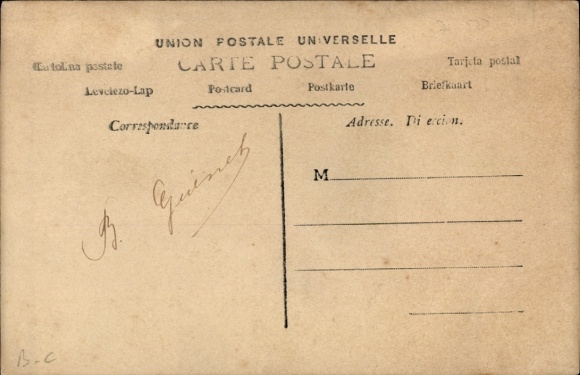 UNION POSTALE UNIVERSELLE
CARTE POSTALE
Cartolina postale
Tarjeta postal
Levelezo-Lap
Postcard
Postkarte
Briefkaart
Correspondance
Adresse. Di ecion.
M
B. Guénet
B-C